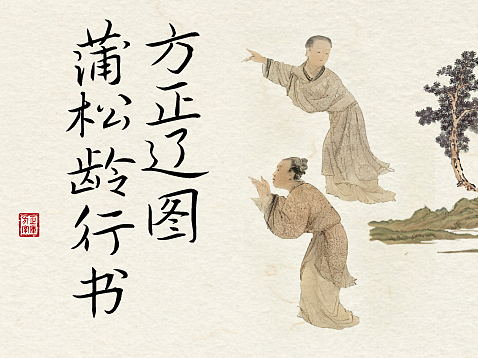 方正辽图
蒲松龄行书